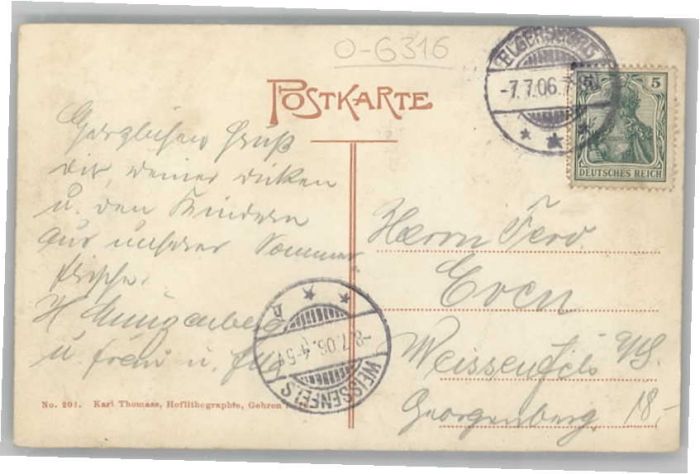 O-6316
ELGERSBURG
-7.7.06.7
5 5
DEUTSCHES REICH
POSTKARTE
Herzlichen Gruß
dir, deiner dicken
u. den Kindern
aus unserer Sommer
frische.
H. Mungenberg
u. Frau u.
Herrn Ferd.
Even
Weissenfels a/S.
Georgenberg 18,-
WEISSENFELS
-8.7.06.4-5
No. 201. Karl Thomass, Hoflithographie, Gehren